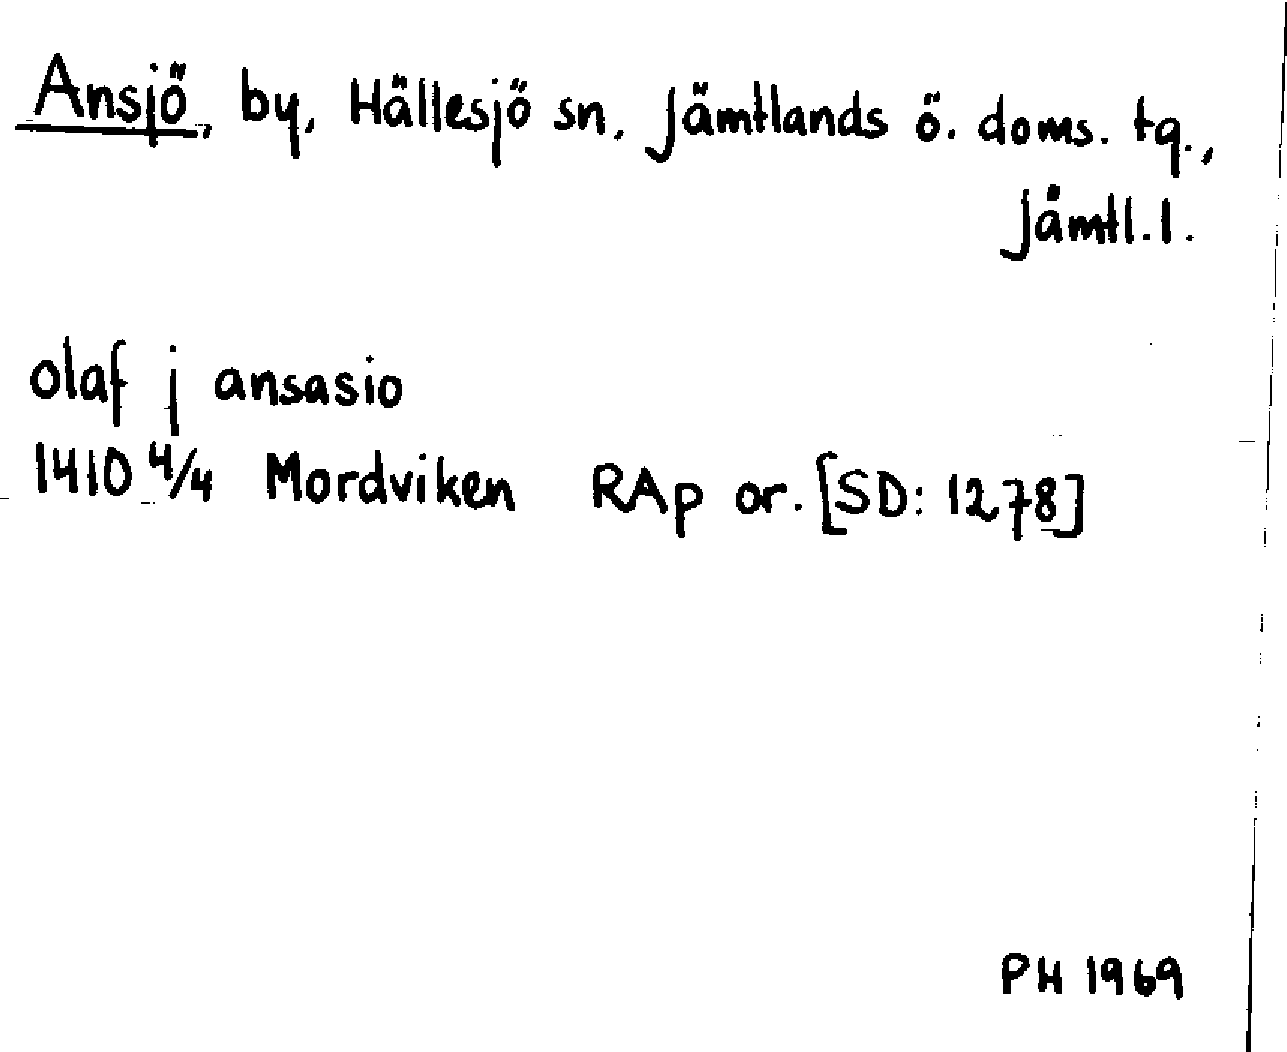 Ansjö, by, Hällesjö sn, Jämtlands ö. doms. tg.,
Jämtl.l.
olaf j ansasio
1410 4/4 Mordviken RAp or. [SD: 1278]
PH 1969